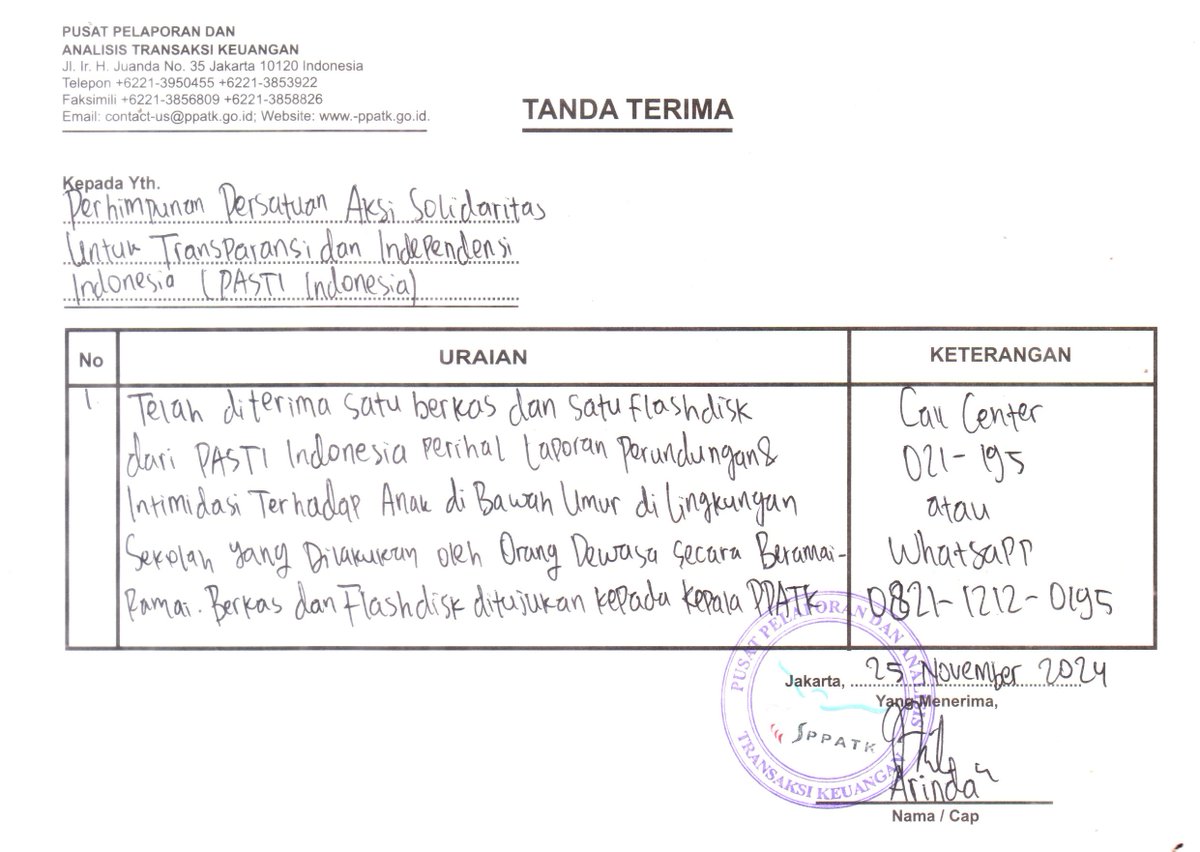 PUSAT PELAPORAN DAN
ANALISIS TRANSAKSI KEUANGAN
Jl. Ir. H. Juanda No. 35 Jakarta 10120 Indonesia
Telepon +6221-3950455 +6221-3853922
Faksimili +6221-3856809 +6221-3858826
Email: contact-us@ppatk.go.id; Website: www.-ppatk.go.id.
TANDA TERIMA
Kepada Yth.
Perhimpunan Persatuan Aksi Solidaritas
Untuk Transparansi dan Independensi
Indonesia (PASTI Indonesia)
No URAIAN KETERANGAN
1. Telah diterima satu berkas dan satu flashdisk
dari PASTI Indonesia perihal Laporan Perundungan &
Intimidasi Terhadap Anak di Bawah Umur di Lingkungan
Sekolah yang Dilakukan oleh Orang Dewasa Secara Beramai-
Ramai. Berkas dan Flashdisk ditujukan kepada Kepala PPATK
Call Center
021-195
atau
WhatsApp
0821-1212-0195
Jakarta, 25 November 2024
Yang Menerima,
PUSAT PELAPORAN DAN ANALISIS
TRANSAKSI KEUANGAN
PPATK
Arinda
Nama / Cap